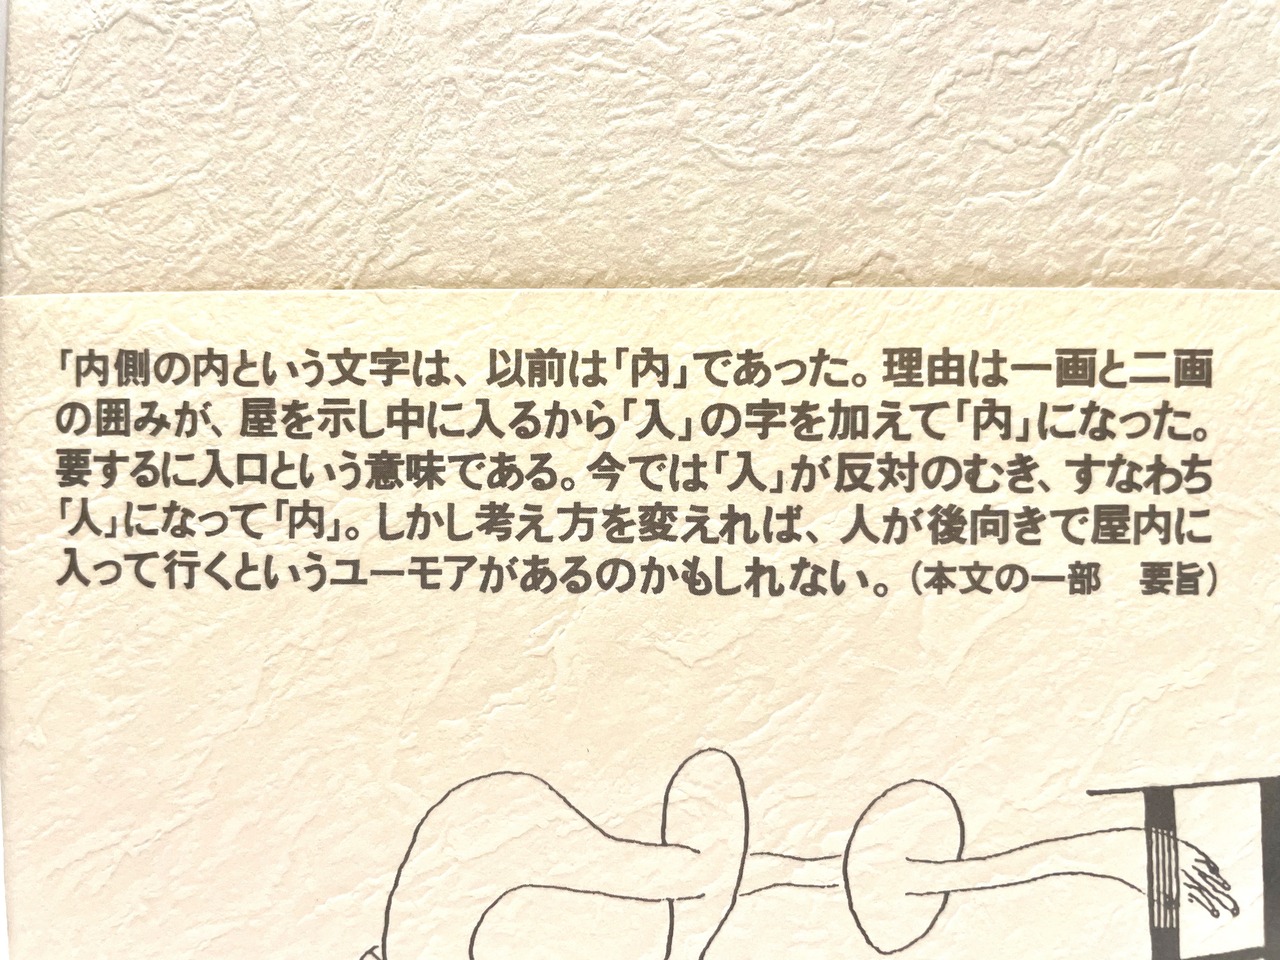 「内側の内という文字は、以前は「內」であった。理由は一画と二画
の囲みが、屋を示し中に入るから「入」の字を加えて「內」になった。
要するに入口という意味である。今では「入」が反対のむき、すなわち
「人」になって「内」。しかし考え方を変えれば、人が後向きで屋内に
入って行くというユーモアがあるのかもしれない。（本文の一部　要旨）